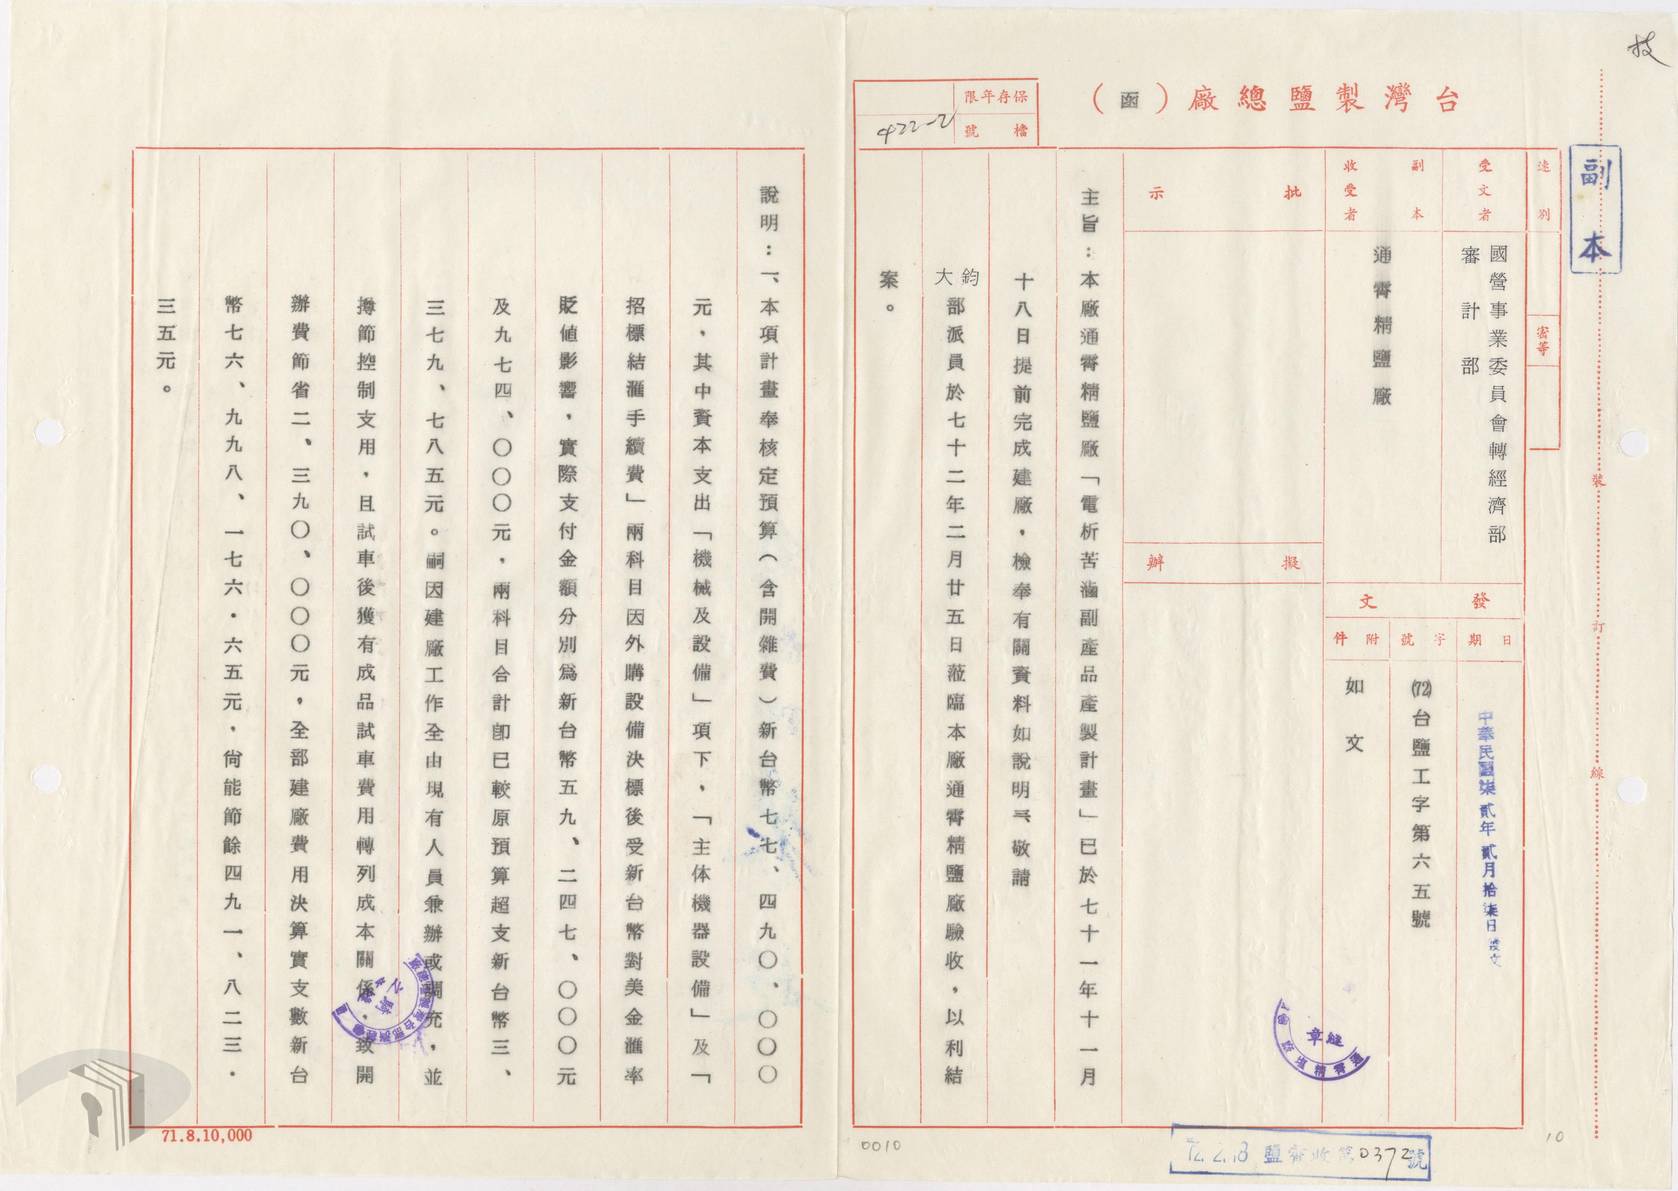 技
台灣製鹽總廠（函）
保存年限
檔號
422-2
副本
速別
密等
受文者
國營事業委員會轉經濟部
審計部
副本收受者
通霄精鹽廠
批示
擬辦
發文
日期
字號
附件
中華民國柒貳年貳月拾柒日發文
(72)台鹽工字第六五號
如文
裝
訂
線
主旨：本廠通霄精鹽廠「電析苦滷副產品產製計畫」已於七十一年十一月
十八日提前完成建廠，檢奉有關資料如說明三敬請
鈞
大
部派員於七十二年二月廿五日蒞臨本廠通霄精鹽廠驗收，以利結
案。
章
通霄精鹽
72.2.18 鹽霄收第0372號
10
0010
說明：一、本項計畫奉核定預算（含開雜費）新台幣七七、四九〇、〇〇〇
元，其中資本支出「機械及設備」項下，「主体機器設備」及「
招標結滙手續費」兩科目因外購設備決標後受新台幣對美金滙率
貶值影響，實際支付金額分別為新台幣五九、二四七、〇〇〇元
及九七四、〇〇〇元，兩科目合計即已較原預算超支新台幣三、
三七九、七八五元。嗣因建廠工作全由現有人員兼辦或調充，並
撙節控制支用，且試車後獲有成品試車費用轉列成本關係，致開
辦費節省二、三九〇、〇〇〇元，全部建廠費用決算實支數新台
幣七六、九九八、一七六．六五元，尙能節餘四九一、八二三．
三五元。
71.8.10,000